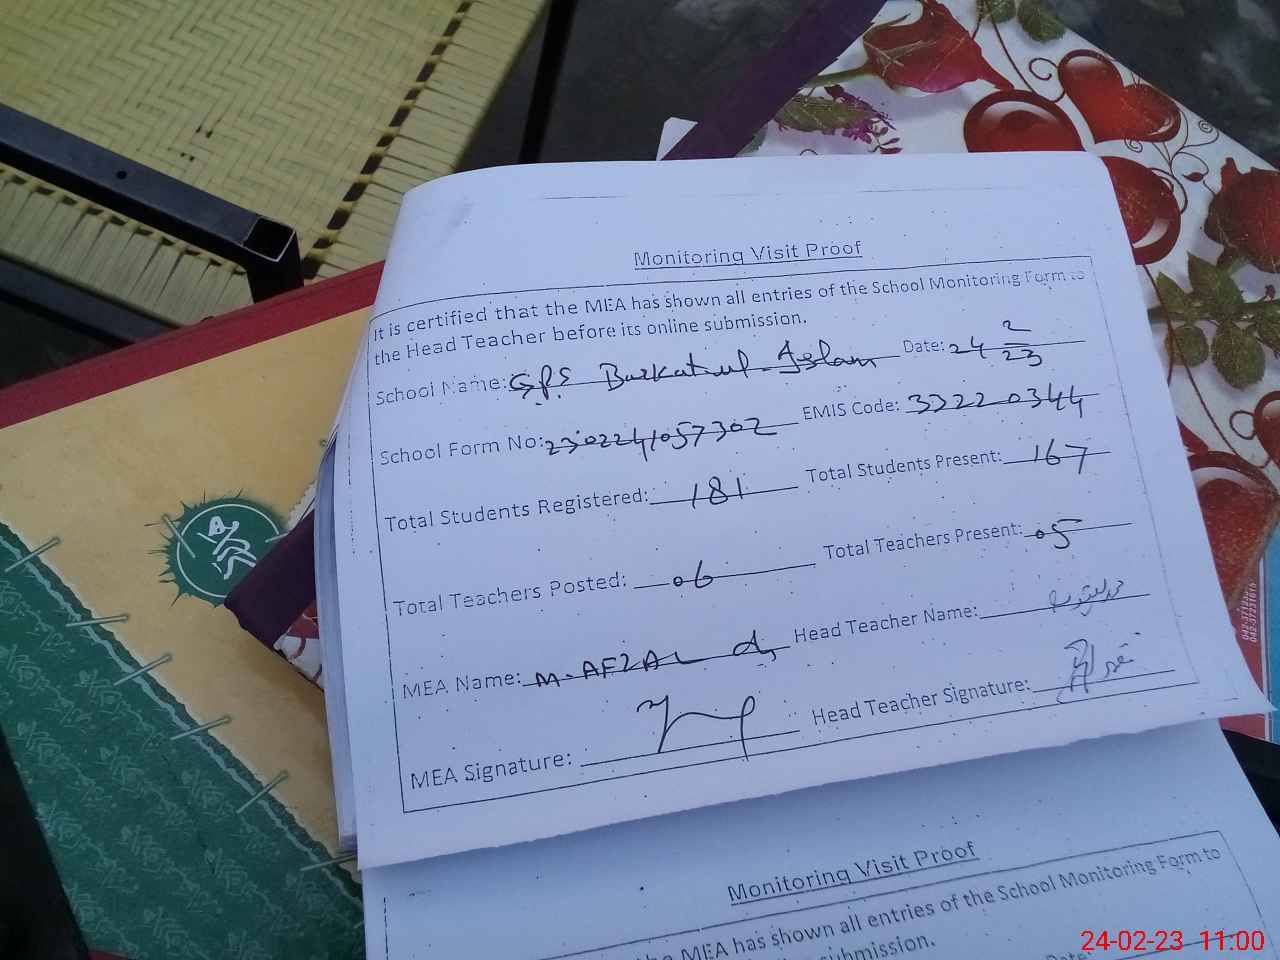 Monitoring Visit Proof
It is certified that the MEA has shown all entries of the School Monitoring Form to
the Head Teacher before its online submission.
School Name: GPS Barkatiul Islam Date: 24 2/23
School Form No: 2302241057302 EMIS Code: 33220344
Total Students Registered: 181 Total Students Present: 167
Total Teachers Posted: 06 Total Teachers Present: 05
MEA Name: M. AFZAL Head Teacher Name:
MEA Signature: Head Teacher Signature:
Monitoring Visit Proof
MEA has shown all entries of the School Monitoring Form to
submission.
Date:
24-02-23 11:00